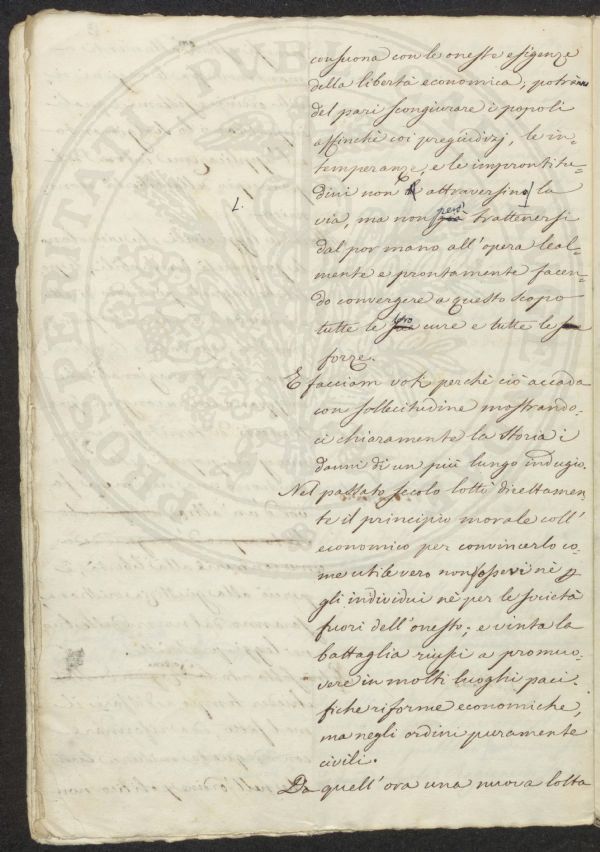 consuona con le oneste esigenze
della libertà economica; potranno
del pari scongiurare i popoli
affinchè coi pregiudizj, le in-
temperanze, e le improntitu-
dini non attraversino la
via, ma non però trattenersi
dal por mano all'opera leal-
mente e prontamente facen-
do convergere a questo scopo
tutte le loro cure e tutte le
forze.
E facciam voti perchè ciò accada
con sollecitudine mostrando-
ci chiaramente la storia i
danni di un più lungo indugio.
Nel passato secolo lottò direttamen
te il principio morale coll'
economico per convincerlo co-
me utile vero non siavi nè
gli individui nè per le società
fuori dell'onesto; e vinta la
battaglia riuscì a promuo-
vere in molti luoghi paci-
fiche riforme economiche,
ma negli ordini puramente
civili.
Da quell'ora una nuova lotta